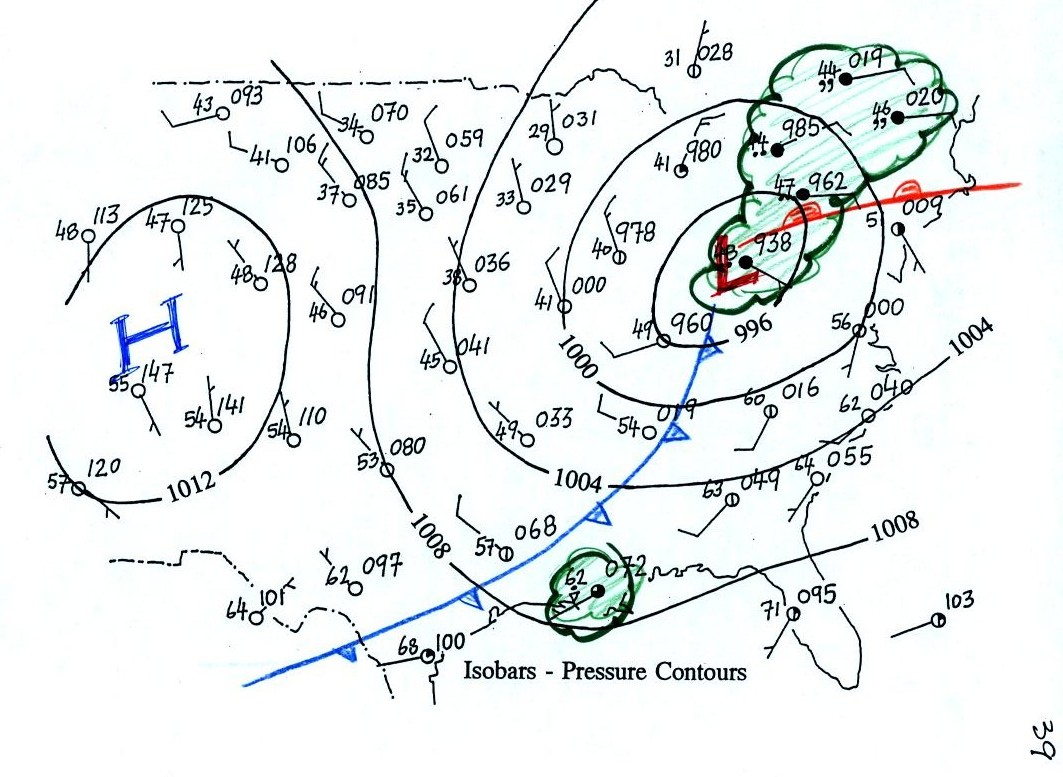 31 028
44 019
46 020
43 093
34 070
32 059
29 031
985
41 980
41 106
37 085
35 061
33 029
47 962
009
48 113
47 125
48 128
46 091
38 036
40 978
938
L
41 000
49 960
996
56 000
H
1000
1004
45 041
55 147
54 141
54 110
49 033
54 019
60 016
62 040
53 080
64 055
57 120
1012
1004
63 049
1008
57 068
1008
62 097
62 072
64 101
71 095
103
68 100
Isobars - Pressure Contours
39